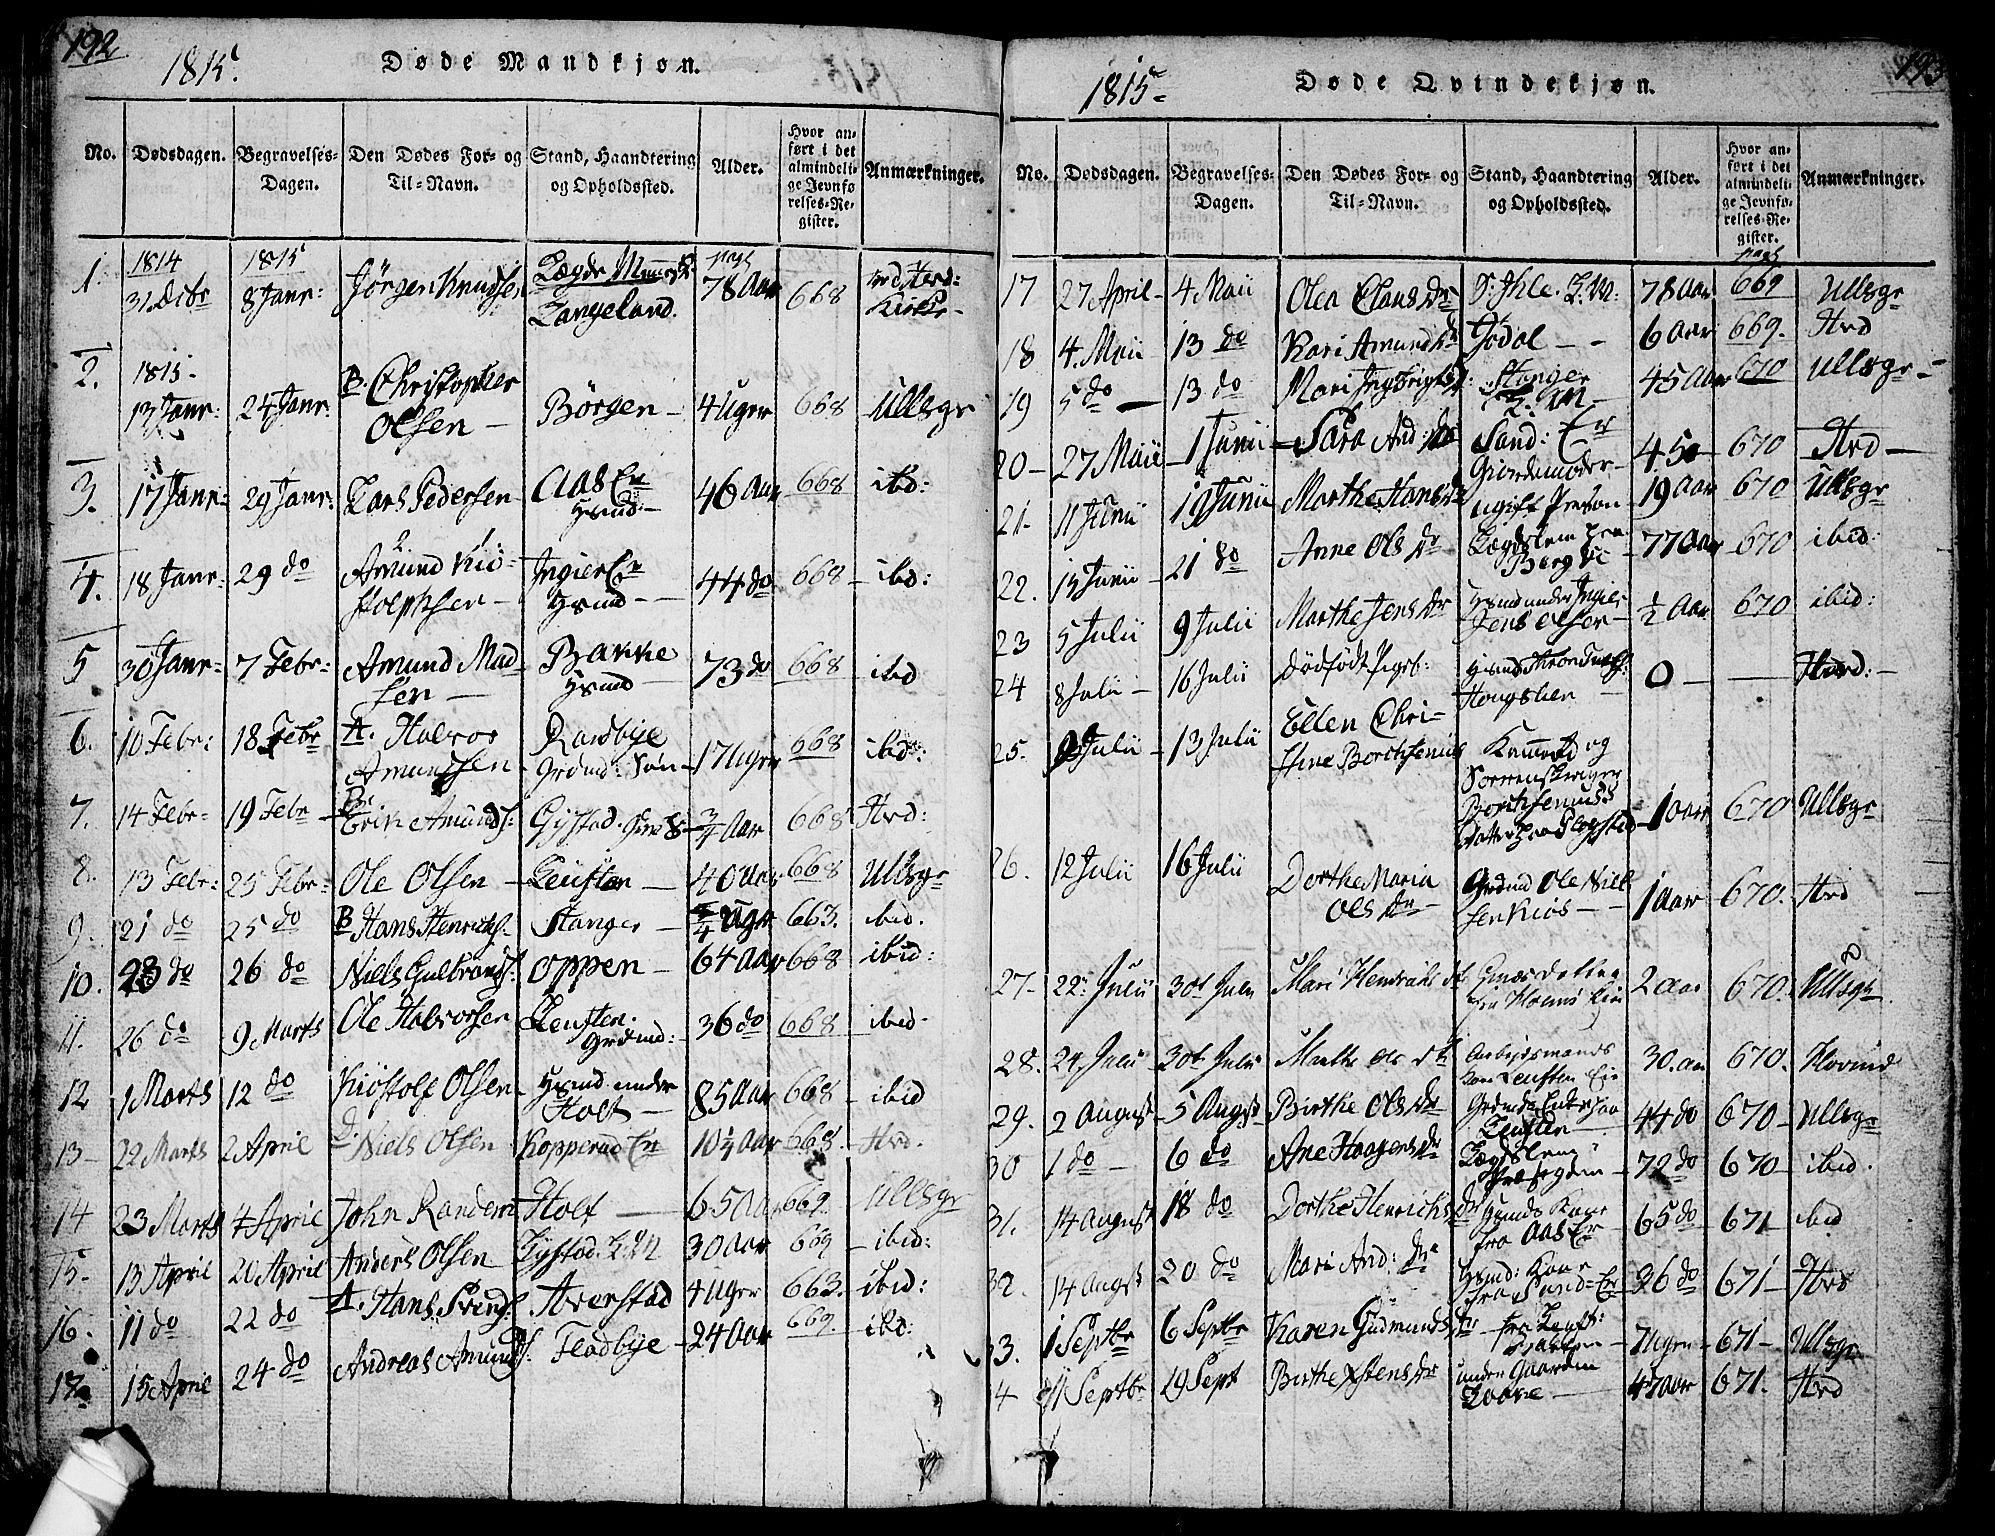 192
1815.
Døde Mandkjøn.
No.
Dødsdagen.
Begravelses-Dagen.
Den Dødes For- og Til-Navn.
Stand, Haandtering og Opholdssted.
Alder.
Hvor anført i det almindelige Jevnførelses-Register.
Anmærkninger.
1. 1814 31 Decbr 1815 8 Janr: Jörgen Knudsen Langeland. 78 Aar pag 668 Kirke
2. 1815 13 Janr: 24 Janr: B. Christopher Olsen Börgen 4 Uger 668 Ullsgr
3. 17 Janr 29 Janr: Lars Pedersen Aas Er Hsmd 46 Aar 668 ibd:
4. 18 Janr: 29 do Amund Kiöstolphsen Ingier Er Hsmd 44 do 668 ibd:
5 30 Janr 7 Febr: Amund Madsen Bakke Hsmd 73 do 668 ibd
6. 10 Febr: 18 Febr A. Halvor Amundsen Randbye Grdmd: Sön 17 Uger 668 ibd:
7. 14 Febr 19 Febr B. Erik Amunds: Gystad 3/4 Aar 668 Hvd:
8. 13 Febr: 25 Febr Ole Olsen Leufsten 40 Aar 668 Ullsgr
9. 21 do 25 do B Hans Henrichs. Stanger 663. ibid.
10. 23 do 26 do Niels Gulbrands: Oppen 64 Aar 668 ibid:
11. 26 do 9 Marts Ole Halvorsen Leufsten. Grdmd: 36 do 668 ibid
12 1 Marts 12 do Kiöstolf Olsen Hsmd under Holt 85 Aar 668 ibid
13 22 Marts 2 April Niels Olsen Kopperud Er 10 1/2 Aar 668. Hvd.
14 23 Marts 4 April John Randem Holt 65 Aar 669. Ullsgr
15. 13 April 20 April Anders Olsen Gystad. L: M 30 Aar 669 ibid:
16. 11 do 22 do A. Hans Svends: Averstad 4 Uger 663. ibid:
17 15 April 24 do Andreas Amunds. Fladbye 24 Aar 669. ibd:
193
1815
Døde Qvindekjøn.
No.
Dødsdagen.
Begravelses-Dagen.
Den Dødes For- og Til-Navn.
Stand, Haandtering og Opholdssted.
Alder.
Hvor anført i det almindelige Jevnførelses-Register.
Anmærkninger.
17 27 April 4 Maii Olea Clausdr Ihle. L: M: 78 Aar pag 669 Ullsgr
18 4. Maii 13 do Kari Amunddr Jödal 6 Aar 669. Hvd
19 5 do 13 do Mari Ingbrigtsd: Stanger L: M 45 Aar 670 Ullsgr
20 27 Maii 1 Junii Sara And: dr Sand: Er Giordmoder 45 670 Hvd
21 11 Junii 19 Junii Marthe Hansdr ugift Person 19 Aar 670 Ullsgr
22. 15 Junii 21 do Anne Olsdr Lægdslem fra Berg Ei 77 Aar 670 ibid:
23 5 Julii 9 Julii Marthe Jensdr Hsmd under Ingier Jens Olsen 1/2 Aar 670 ibid:
24 8 Julii 16 Julii Dödfödt Pigeb: Hsmd Haugslien 0 Hvd:
25. Julii 13 Julii Ellen Christine Borchsenius Kammerd og Sorenskriver Borchsenius's Datter fra 1 Aar 670 Ullsgr
26. 12 Julii 16 Julii Dorthe Maria Olsdr Grdmd Ole Nielsen Kiös 1 Aar 670. Hvd
27 22 Julii 30t Juli Mari Hendriks dt 2 Aar 670. Ullsgr
28. 24 Julii 30t Julii Marthe Ols dt Arbejdsmands Kone Leufsten Eie 30. aar 670. Hovind
29. 2 August 5 Augst Birthe Olsdr Grdmds Enke fra Leufsten 44 do 670 Ullsgr
30 1 do 6 do Ane Haagensdr Lægdslem i Præstegden 72 do 670 ibid.
31. 14 August 18 do Dorthe Henrichsdr Hsmds Kone fra Aas Er 65 do 671 ibid
32. 14 Augst 20 do Mari And: dr Hsmd: Kone fra Sand Er 36 do 671 Hvd
33. 1 Septbr 6 Septbr Karen Gudmundsdr fra Leufst: 7 Ugr 671 Ullsgr
34 11 Septbr 19 Sept Birthe Xstensdr under Gaarden 47 Aar 671. Hvd